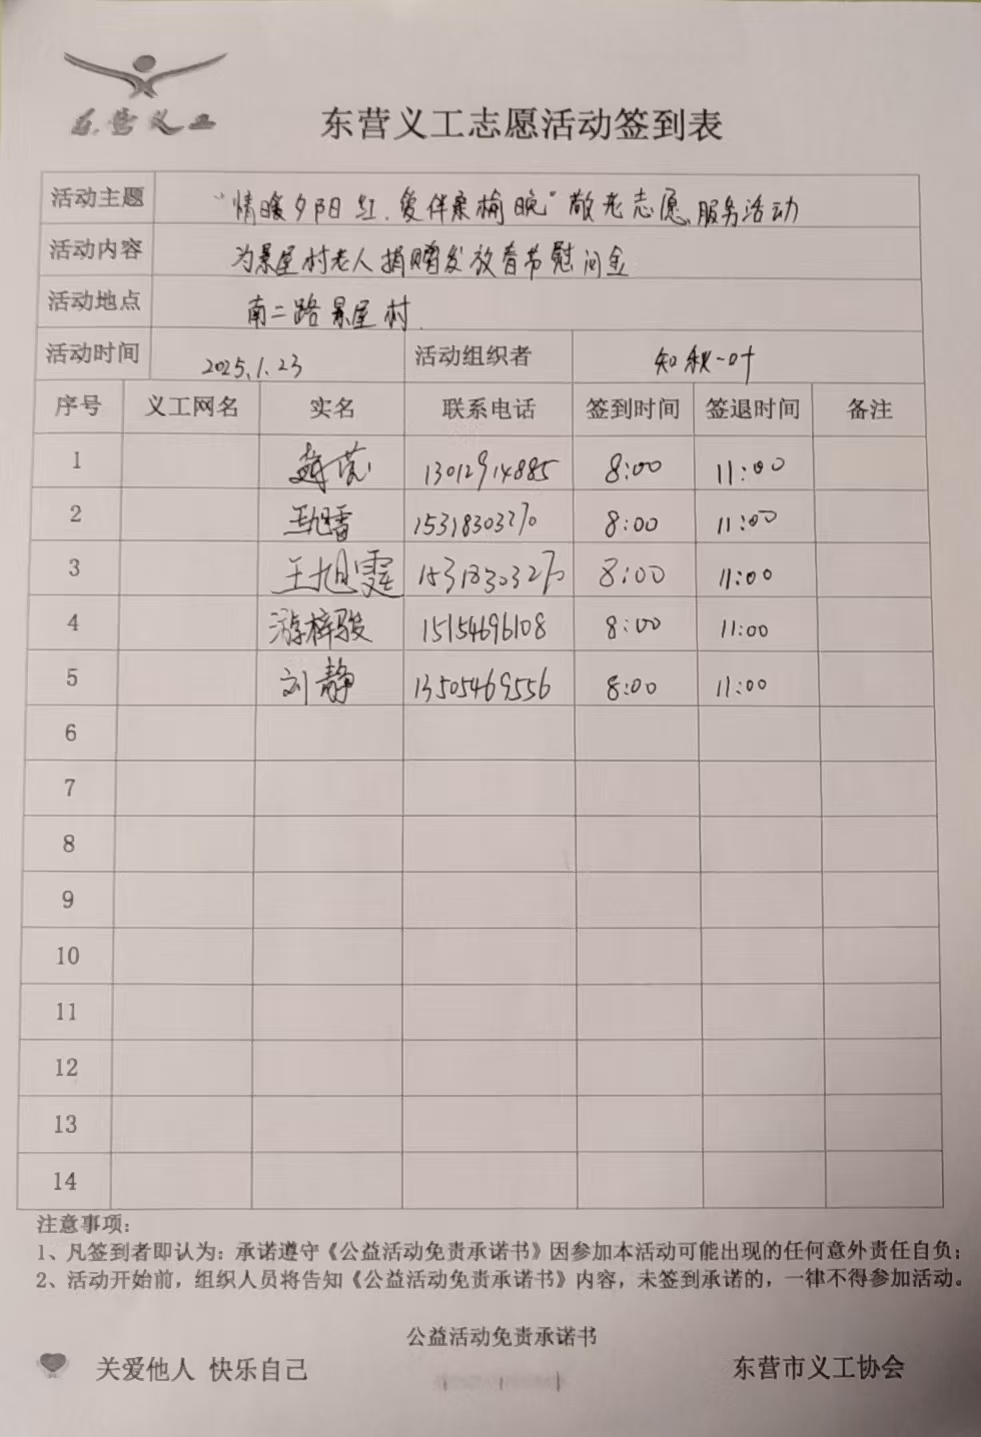 东营义工
东营义工志愿活动签到表
活动主题 “情暖夕阳红.爱伴桑榆晚”敬老志愿服务活动
活动内容 为景屋村老人捐赠发放春节慰问金
活动地点 南二路景屋村.
活动时间 2025.1.23 活动组织者 知秋一叶
序号 义工网名 实名 联系电话 签到时间 签退时间 备注
1 13012914885 8:00 11:00
2 王旭睿 15318303270 8:00 11:00
3 王旭霆 15318303270 8:00 11:00
4 游梓骏 15154696108 8:00 11:00
5 刘静 13505469556 8:00 11:00
6
7
8
9
10
11
12
13
14
注意事项:
1、凡签到者即认为: 承诺遵守《公益活动免责承诺书》因参加本活动可能出现的任何意外责任自负;
2、活动开始前, 组织人员将告知《公益活动免责承诺书》内容, 未签到承诺的, 一律不得参加活动。
公益活动免责承诺书
关爱他人 快乐自己 东营市义工协会